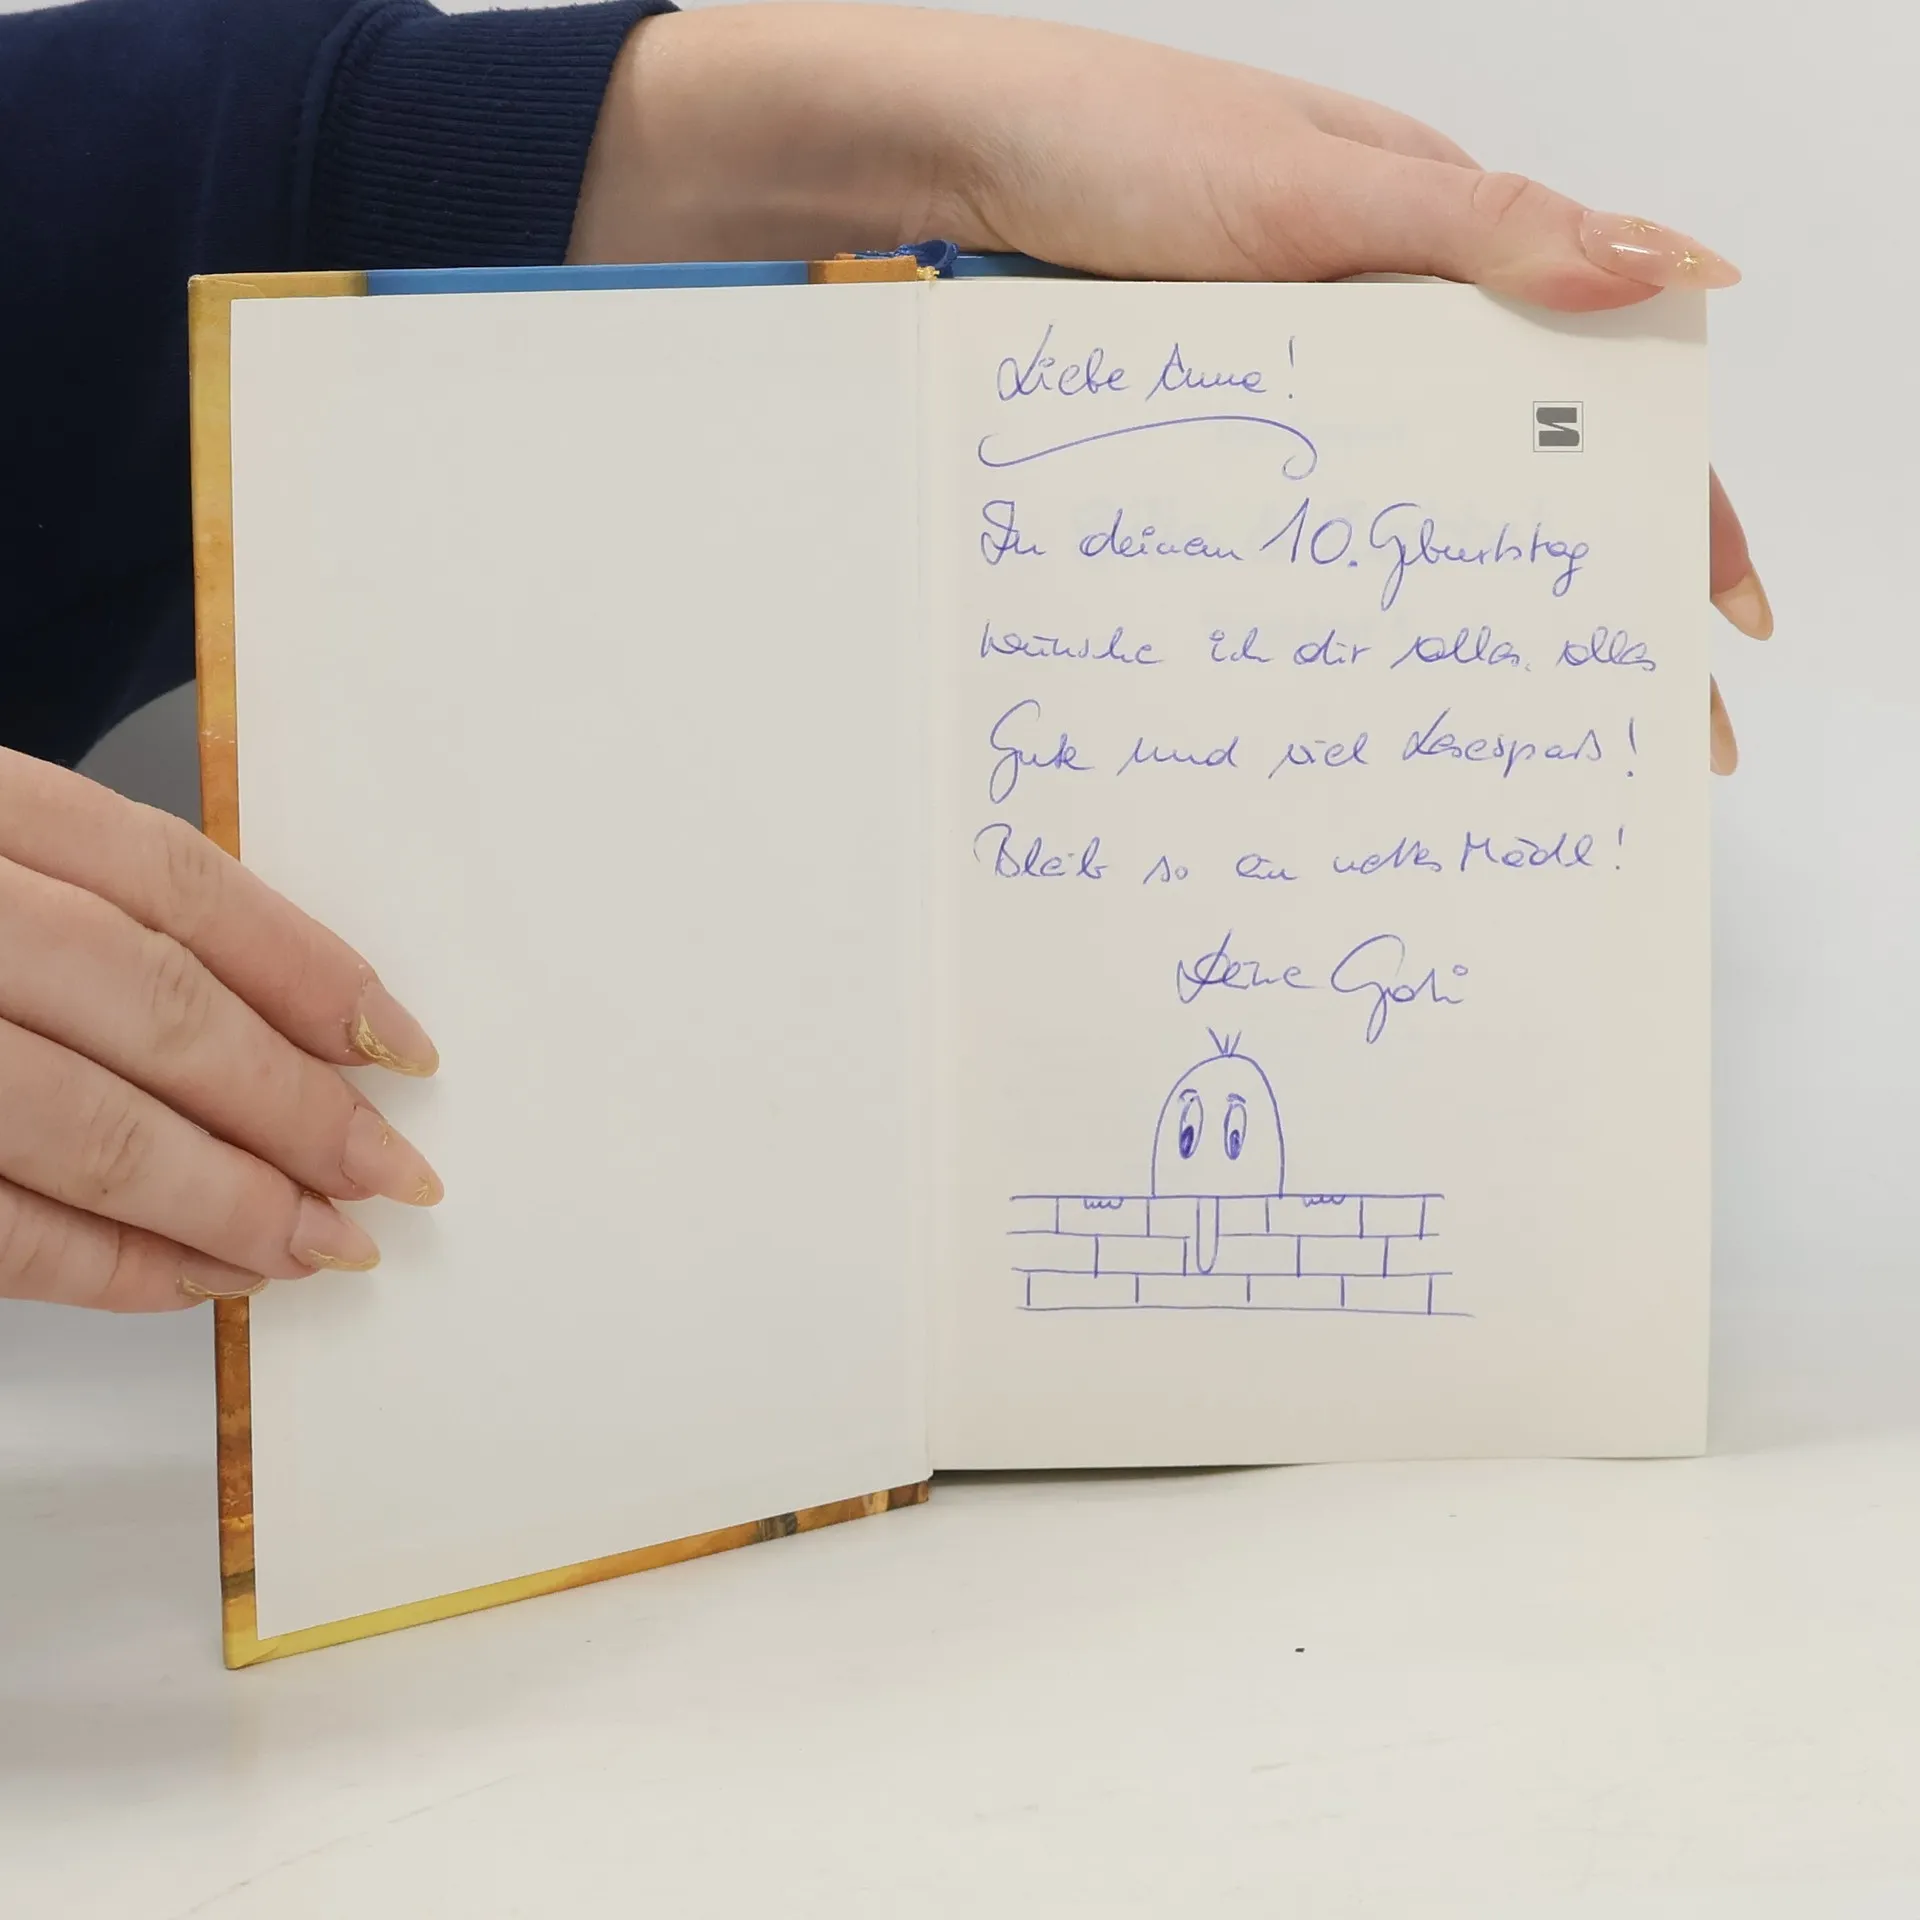 Liebe Anne!
Zu deinem 10. Geburtstag
wünsche ich dir alles, alles
Gute und viel Lesespaß!
Bleib so ein nettes Mädl!
Deine Godi